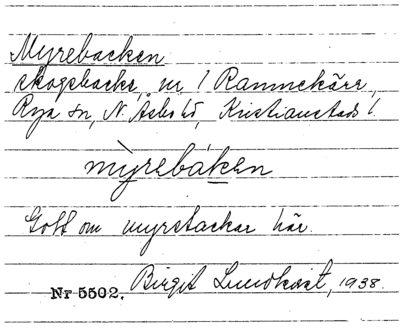 Myrebacken
skogsbacke, nr 1 Rammekärr,
Rya sn, N. Åsbo hd, Kristianstads l.
mỳrebáken
Gott om myrstackar här.
Nr 5502. Birgit Lundkvist, 1938.